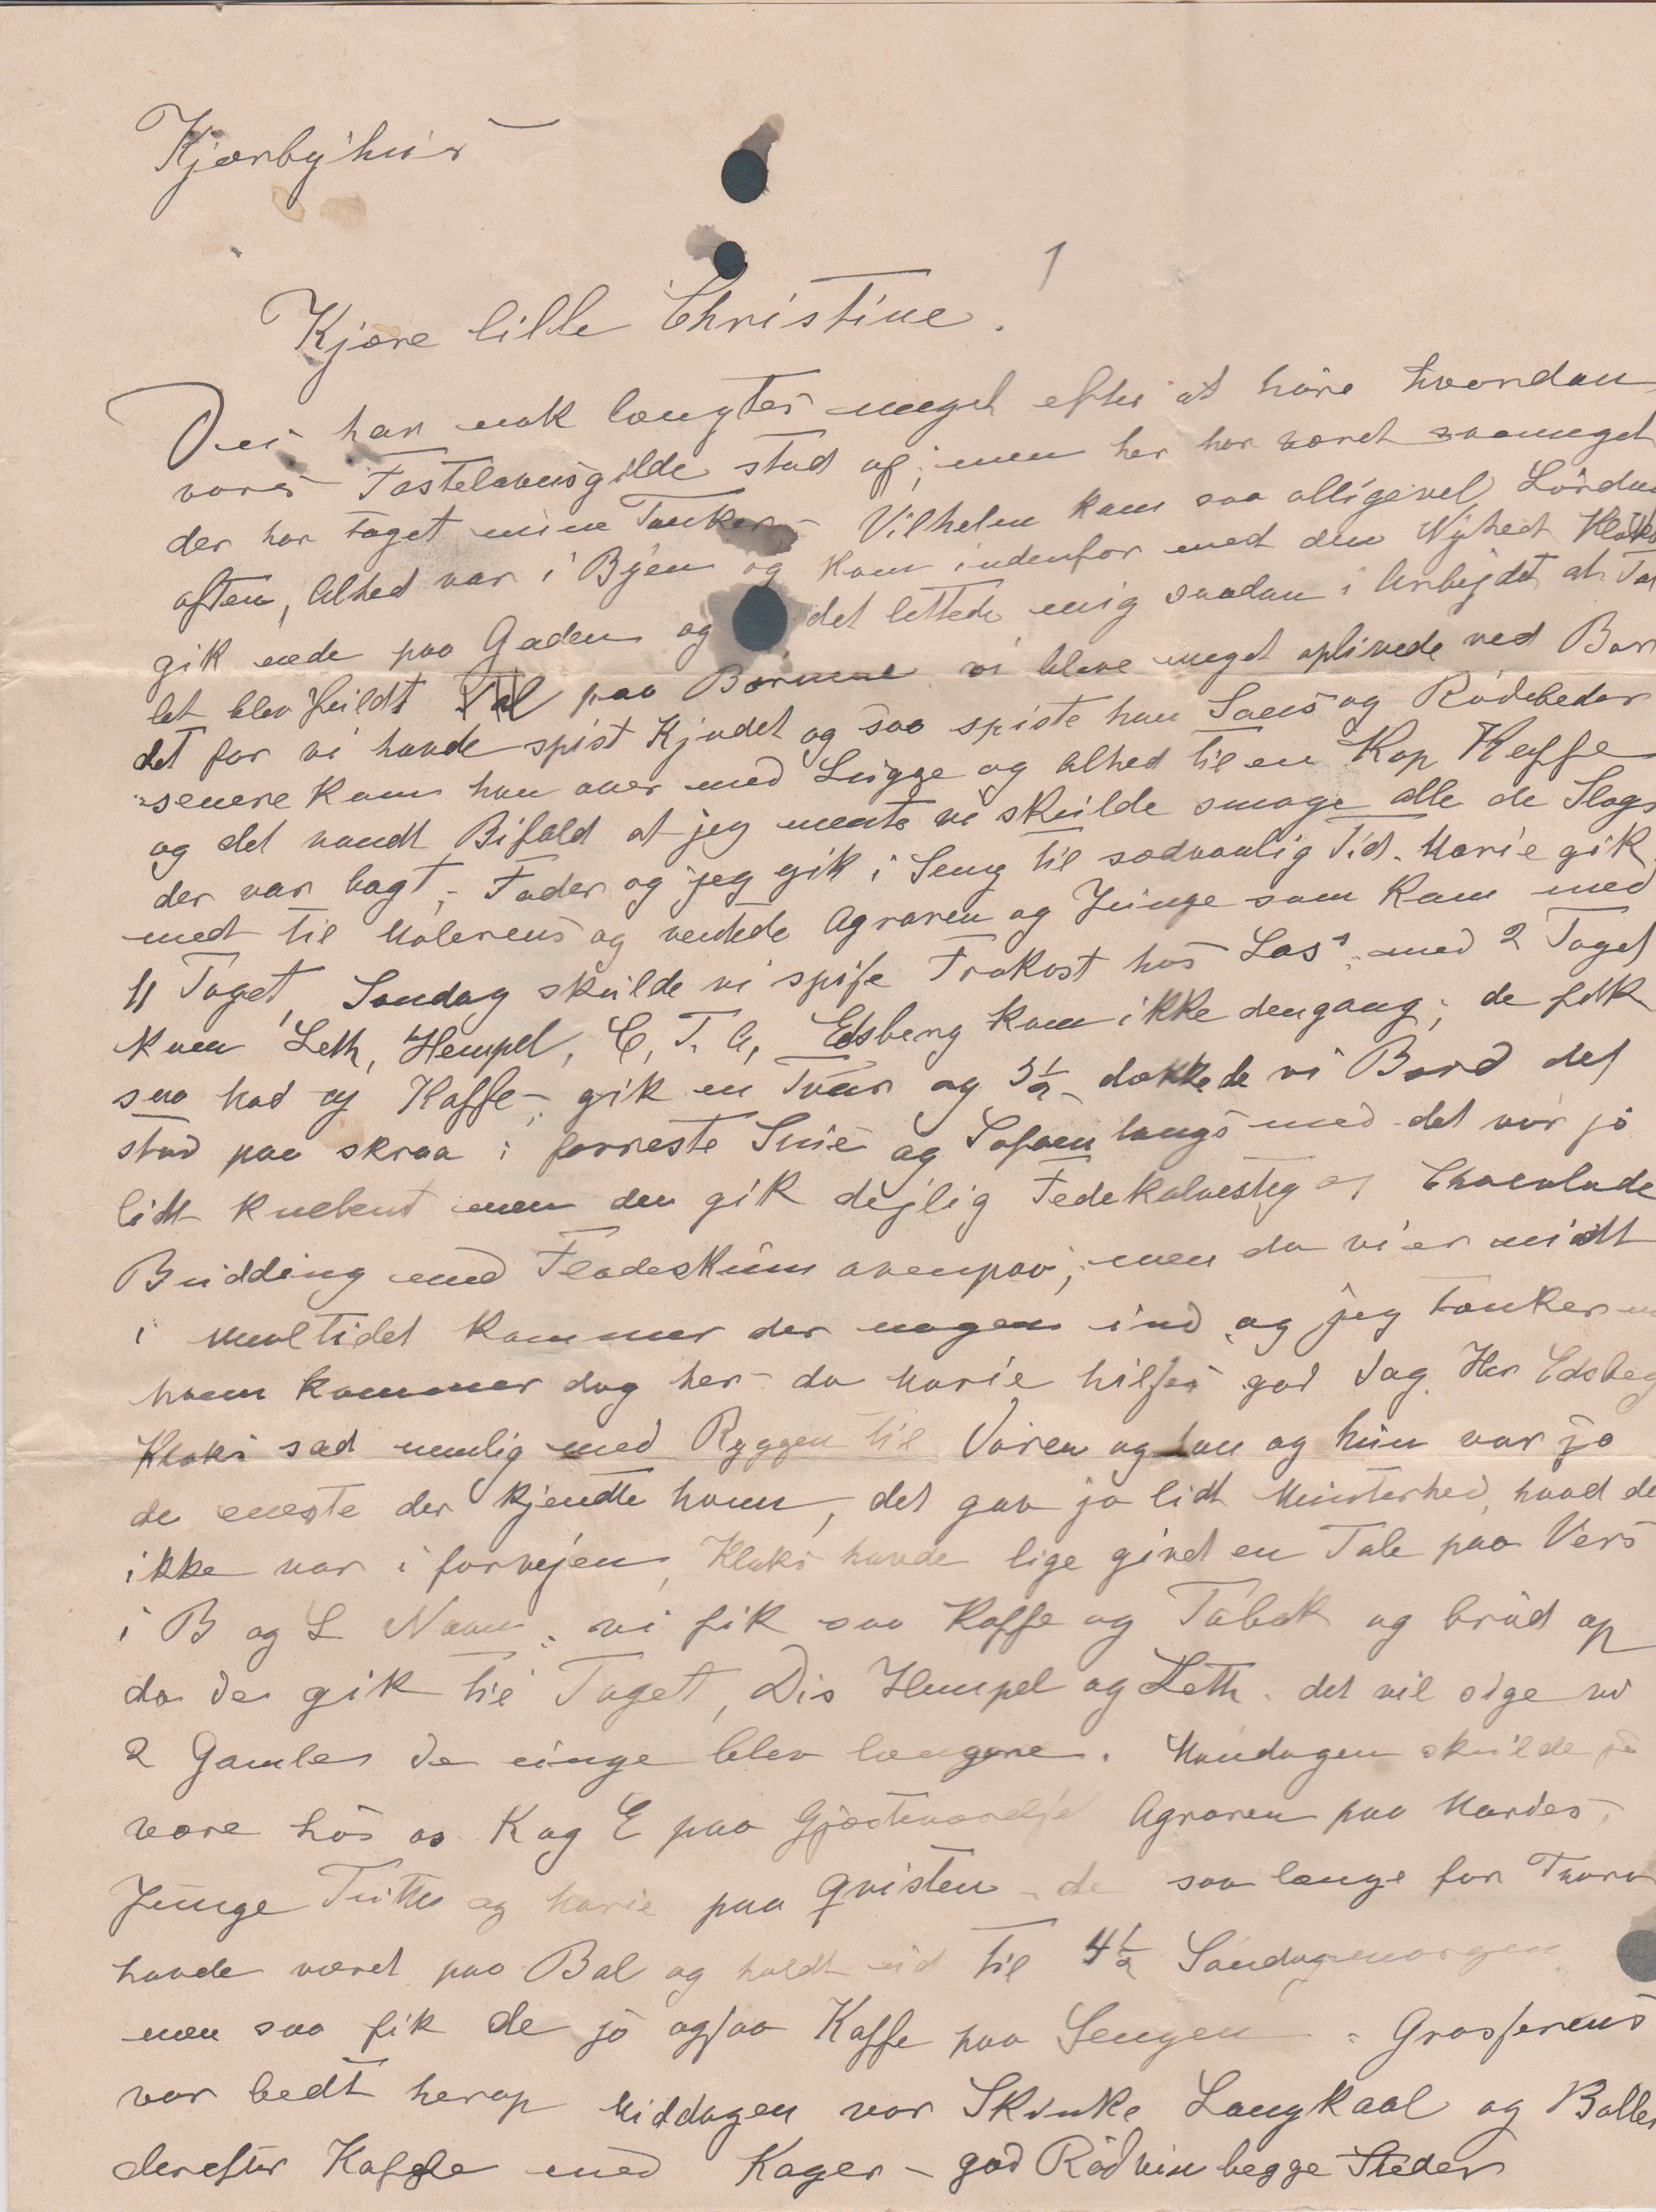 Kjærbyhus
1
Kjære lille Christine.
Du har nok længtes meget efter at høre hvordan
vores Fastelavnsgilde stod af; men her har været saameget
der har taget mine Tanker – Vilhelm kom saa alligevel Lørdag
aften, Alhed var i Byen og kom indenfor med den Nyhed Klaks
gik nede paa Gaden og det lettede mig saadan i Arbejdet at
let blev fuldt paa Børnene vi bleve meget oplivede ved
det for vi havde spist Kjødet og saa spiste han Saus og Rødbeder
senere kom han over med Lugge og Alhed til en Kop Kaffe
og det vandt Bifald at jeg mente vi skulde smage alle de Slags
der var bagt, – Fader og jeg gik i Seng til sædvanlig Tid. Marie gik
med til Malerens og ventede Agraren og Junge som kom med
11 Toget, Søndag skulde vi spise Frokost hos Las's med 2 Toget
kom Leth, Hempel, C, T. A, Edsberg kom ikke dengang; de fik
saa Mad og Kaffe – gik en Tur og 5½ dækkede vi Bord det
stod paa skraa i forreste Stue og Sofaen langs med det var jo
lidt knebent men den gik dejlig Fedekalvesteg og Chocolade
Budding med Flødeskum ovenpaa; men da vi er midt
i Maaltidet kommer der nogen ind og jeg tænker
hvem kommer dog her – da Marie hilser god Dag Hr Edsberg
Klaks sad nemlig med Ryggen til Døren og han og hun var jo
de eneste der kjendte ham, det gav jo lidt Munterhed, hvad de
ikke var i forvejen, Klaks havde lige givet en Tale paa Vers
i B og L Navn. vi fik saa Kaffe og Tobak og brød op
da de gik til Toget, Dis Hempel og Leth. det vil sige vi
2 Gamle, de unge blev længere. Mandagen skulde jo
være hos os K og E paa Gjæsteværelset Agraren paa Mardes,
Junge Tutte og Marie paa Qvisten – de saa længe for
havde været paa Bal og holdt ud til 4½ Søndagmorgen
men saa fik de jo ogsaa Kaffe paa Sengen. Grosserens
var bedt herop Middagen var Skinke Langkaal og Boller
derefter Kaffe med Kager – god Rødvin begge Steder